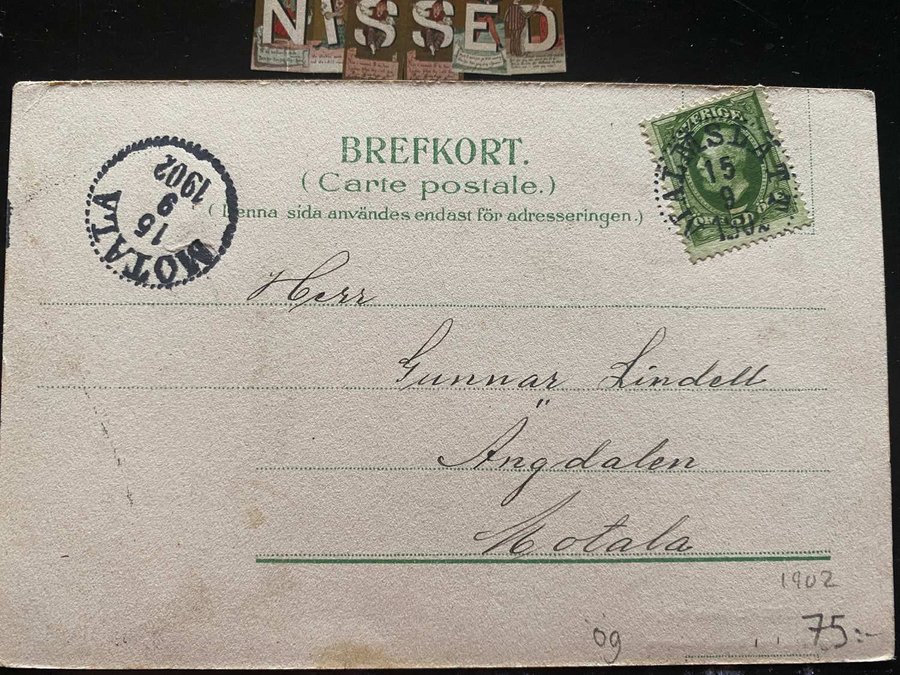 NISSED
BREFKORT.
(Carte postale.)
(Denna sida användes endast för adresseringen.)
MOTALA
15
9
1902
SVERIGE
MALMSLÄTT
15
9
1902
Herr
Gunnar Lindell
Ängdalen
Motala
1902
ög
75:-